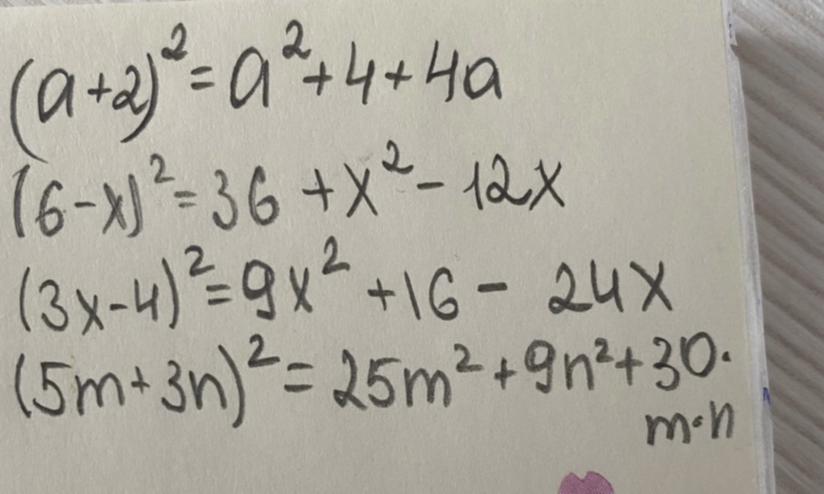 (a+2)² = a² + 4 + 4a
(6-x)² = 36 + x² - 12x
(3x-4)² = 9x² + 16 - 24x
(5m+3n)² = 25m² + 9n² + 30·
m·n